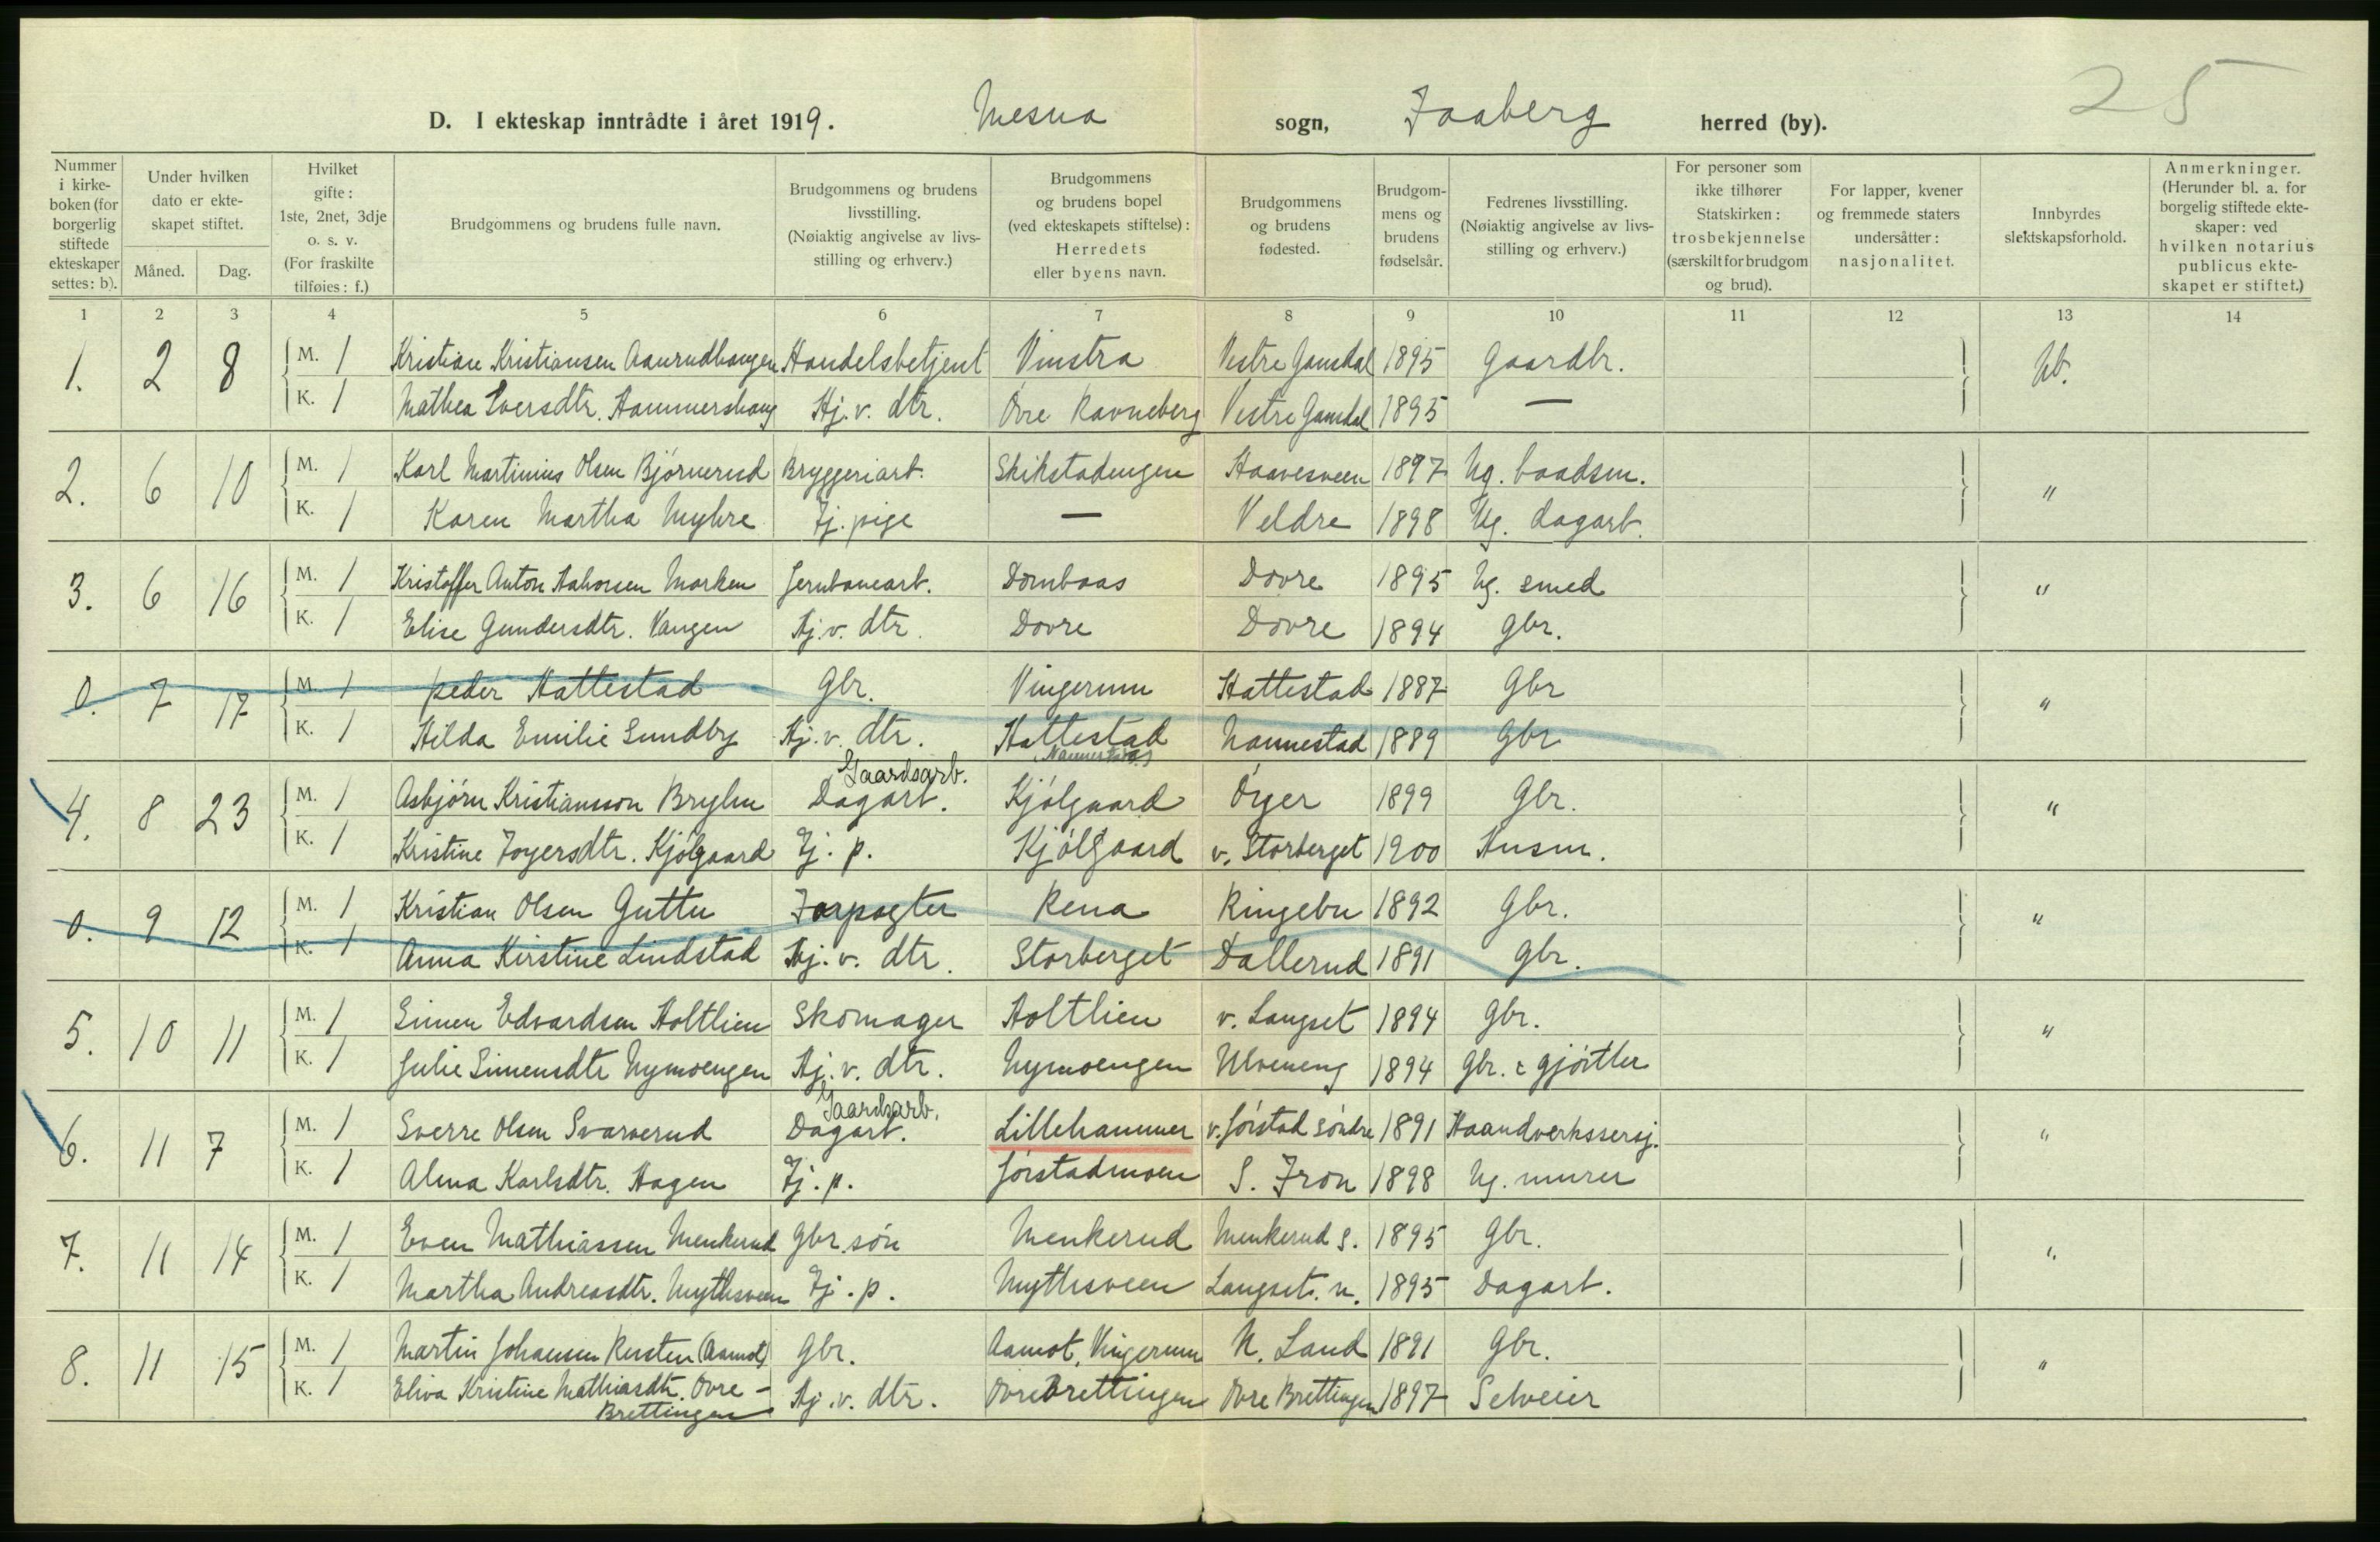 25
D. I ekteskap inntrådte i året 1919. Mesna sogn, Faaberg herred (by).
Nummer i kirke-boken (for borgerlig stiftede ekteskaper settes: b).
Under hvilken dato er ekte-skapet stiftet.
Måned. Dag.
Hvilket gifte: 1ste, 2net, 3dje o. s. v. (For fraskilte tilføies: f.)
Brudgommens og brudens fulle navn.
Brudgommens og brudens livsstilling. (Nøiaktig angivelse av livs-stilling og erhverv.)
Brudgommens og brudens bopel (ved ekteskapets stiftelse): Herredets eller byens navn.
Brudgommens og brudens fødested.
Brudgom-mens og brudens fødselsår.
Fedrenes livsstilling. (Nøiaktig angivelse av livs-stilling og erhverv.)
For personer som ikke tilhører Statskirken: trosbekjennelse (særskilt for brudgom og brud).
For lapper, kvener og fremmede staters undersåtter: nasjonalitet.
Innbyrdes slektskapsforhold.
Anmerkninger. (Herunder bl. a. for borgelig stiftede ekte-skaper: ved hvilken notarius publicus ekte-skapet er stiftet.)
1 2 3 4 5 6 7 8 9 10 11 12 13 14
1. 2 8 M. 1 Kristian Kristiansen Aanrudhaugen Handelsbetjent Vinstra Vestre Gausdal 1895 Gaardbr. Ub.
K. 1 Mathea Iversdtr. Hammershaug Hj. v. dtr. Övre Ravneberg Vestre Gausdal 1895 —
2. 6 10 M. 1 Karl Martinius Olsen Björnerud Bryggeriarb. Skikstadengen Haavesveen 1897 Ug. baadsm. "
K. 1 Karen Martha Myhre Tj. pige — Veldre 1898 Ug. dagarb.
3. 6 16 M. 1 Kristoffer Anton Marken Jernbanearb. Dombaas Dovre 1895 Ug. smed "
K. 1 Elise Gundersdtr. Vangen Hj. v. dtr. Dovre Dovre 1894 Gbr.
0. 7 17 M. 1 Peder Hattestad Gbr. Vingerum Hattestad 1887 Gbr "
K. 1 Hilda Emilie Sundby Hj. v. dtr. Hattestad (Nannestad) Nannestad 1889 Gbr
4. 8 23 M. 1 Asbjörn Kristiansson Bryhn Dagarb. Gaardsarb. Kjölgaard Öyer 1899 Gbr. "
K. 1 Kristine Toyersdtr. Kjölgaard Tj. p. Kjölgaard v. Storberget 1900 Husm.
0. 9 12 M. 1 Kristian Olsen Guttu Forpagter Rena Ringebu 1892 Gbr. "
K. 1 Anna Kirstine Lindstad Hj. v. dtr. Storberget Dallerud 1891 Gbr.
5. 10 11 M. 1 Simen Edvardsen Holtlien Skomager Holtlien v. Langset 1894 Gbr. "
K. 1 Julie Simensdtr Nymoengen Hj. v. dtr. Nymoengen Ulveneng 1894 Gbr. & gjörtler
6. 11 7 M. 1 Sverre Olsen Svarverud Dagarb. Gaardsarb. Lillehammer v. Jörstad söndre 1891 Haandverkssersj. "
K. 1 Alma Karlsdtr. Hagen Tj. p. Jörstadmoen S. Fron 1898 Ug. murer
7. 11 14 M. 1 Even Mathiassen Menkerud Gbr. sön Menkerud Menkerud s. 1895 Gbr. "
K. 1 Martha Andreasdtr. Mythsveen Tj. p. Mythsveen Langset. n. 1895 Dagarb.
8. 11 15 M. 1 Martin Johansen Rusten (Aamot) Gbr. Aamot, Vingerum N. Land 1891 Gbr. "
K. 1 Eliva Kristine Mathiasdtr. Övre - Hj. v. dtr. Övre Brettingen Övre Brettingen 1897 Selveier
Brettingen